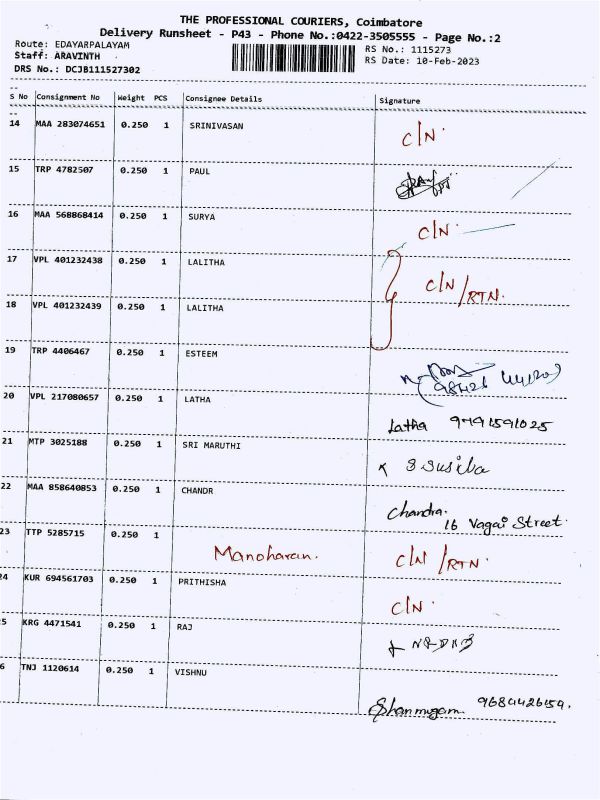 THE PROFESSIONAL COURIERS, Coimbatore
Delivery Runsheet - P43 - Phone No.:0422-3505555 - Page No.:2
Route: EDAYARPALAYAM
RS No.: 1115273
Staff: ARAVINTH
RS Date: 10-Feb-2023
DRS No.: DCJB111527302
S No Consignment No Weight PCS Consignee Details Signature
14 MAA 283074651 0.250 1 SRINIVASAN C/N.
15 TRP 4782507 0.250 1 PAUL
16 MAA 568868414 0.250 1 SURYA C/N.
17 VPL 401232438 0.250 1 LALITHA C/N/RTN.
18 VPL 401232439 0.250 1 LALITHA
19 TRP 4406467 0.250 1 ESTEEM
20 VPL 217080657 0.250 1 LATHA Latha 9791591025
21 MTP 3025188 0.250 1 SRI MARUTHI S Susila
22 MAA 858640853 0.250 1 CHANDR Chandra.
16 Vagai Street.
23 TTP 5285715 0.250 1 Manoharan. C/N/RTN.
24 KUR 694561703 0.250 1 PRITHISHA C/N.
5 KRG 4471541 0.250 1 RAJ
6 TNJ 1120614 0.250 1 VISHNU Shanmugam